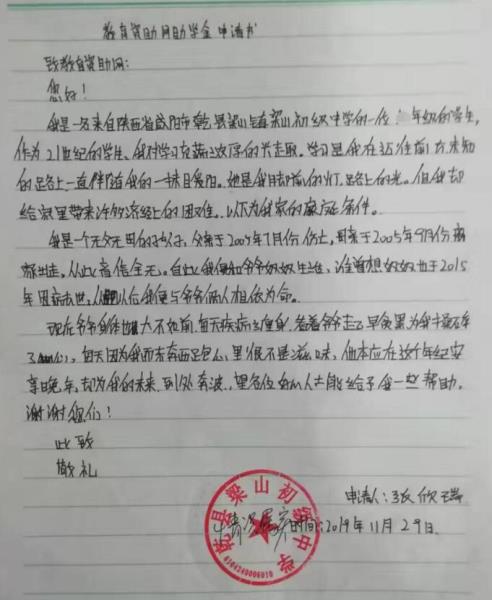 教育资助网助学金申请书
致教育资助网：
您好！
我是一名来自陕西省咸阳市乾县梁山镇梁山初级中学的一位 年级的学生，
作为21世纪的学生，我对学习充满 浓厚的 趣。学习是我在 往前方未知
的路上一直伴随我的一抹 阳。她是我 前的灯，路上的光。但我却
给家里带来许多经济上的困难。以下为我家的家庭条件。
我是一个无父无母的孩子，父亲于2004年7月份 世，母亲于2005年9月份离
家出走，从此音信全无。自此我便和爷爷奶奶生活，谁曾想奶奶也于2015
年因病去世，从 以后我便与爷爷俩人相依为命。
现在爷爷身体大不如前，每天疾病 身，看着爷爷走了 累为我
了 ，每天因为我而东奔西 ，心里很不是滋味，他本应在这个年纪安
享晚年，却为我的未来，到处奔波。望各位好心人士能给予我一些帮助。
谢谢您们！
此致
敬礼
申请人：张欣瑞
情况属实 时间：2019年11月29日
乾县梁山初级中学